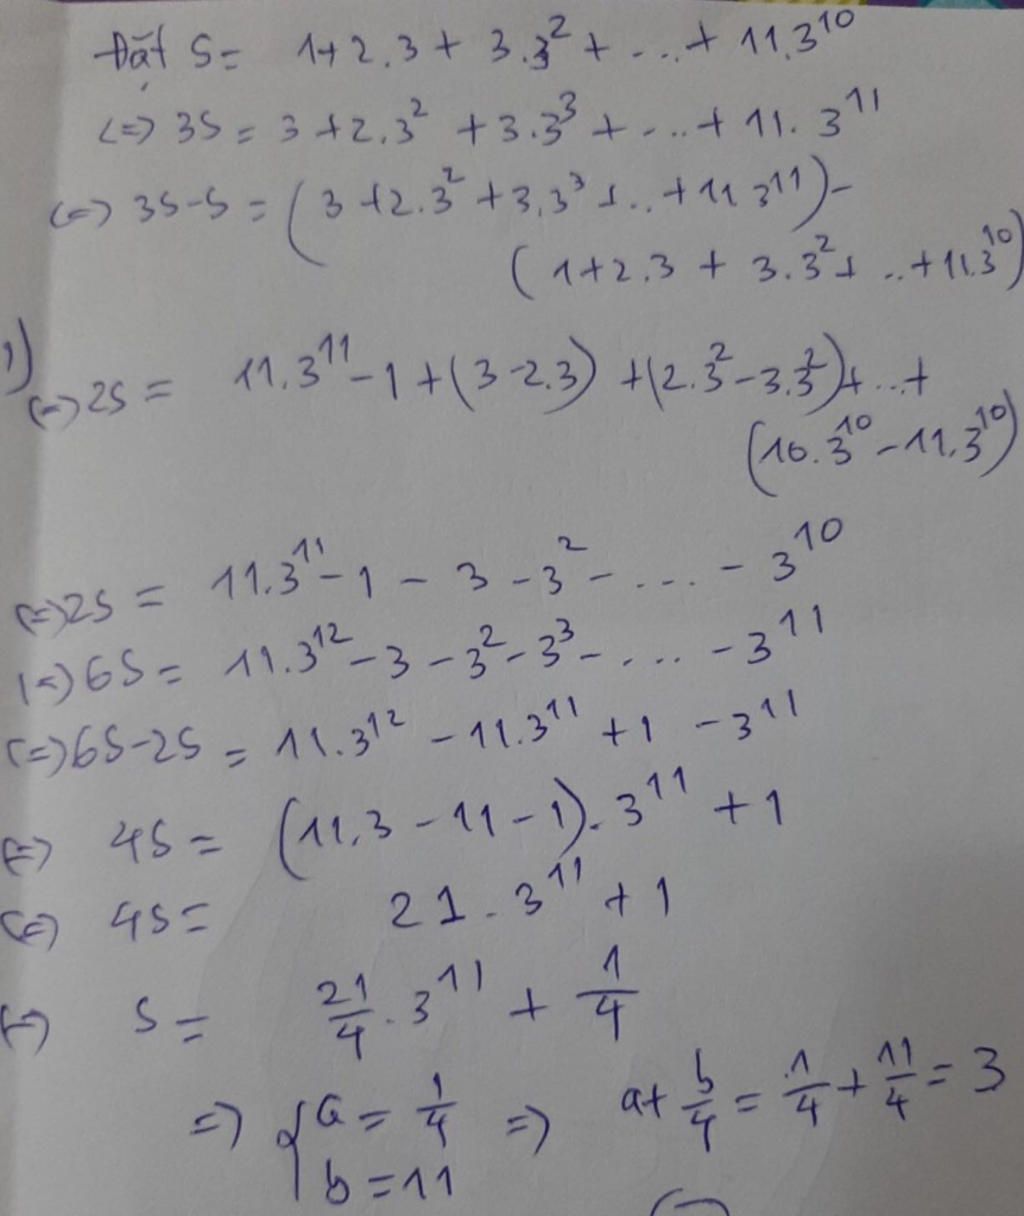 Đặt S = 1+2.3 + 3.3² + ... + 11.3¹⁰
(=) 3S = 3 +2.3² +3.3³ + ... + 11.3¹¹
(=) 3S-S = (3 +2.3² +3.3³ + .. +11 3¹¹) -
(1+2.3 + 3.3² + .. +11.3¹⁰)
1)
(=) 2S = 11.3¹¹ - 1 + (3 - 2.3) + (2.3² - 3.3²) + ... +
(10.3¹⁰ - 11.3¹⁰)
(=) 2S = 11.3¹¹ - 1 - 3 - 3² - .... - 3¹⁰
(=) 6S = 11.3¹² - 3 - 3² - 3³ - .... - 3¹¹
(=) 6S-2S = 11.3¹² - 11.3¹¹ + 1 - 3¹¹
(=) 4S = (11.3 - 11 - 1).3¹¹ + 1
(=) 4S = 21.3¹¹ + 1
(=) S = 21/4 . 3¹¹ + 1/4
=> { a = 1/4 => a + b/4 = 1/4 + 11/4 = 3
b = 11